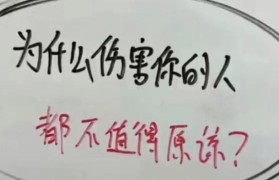 为什么伤害你的人
都不值得原谅？